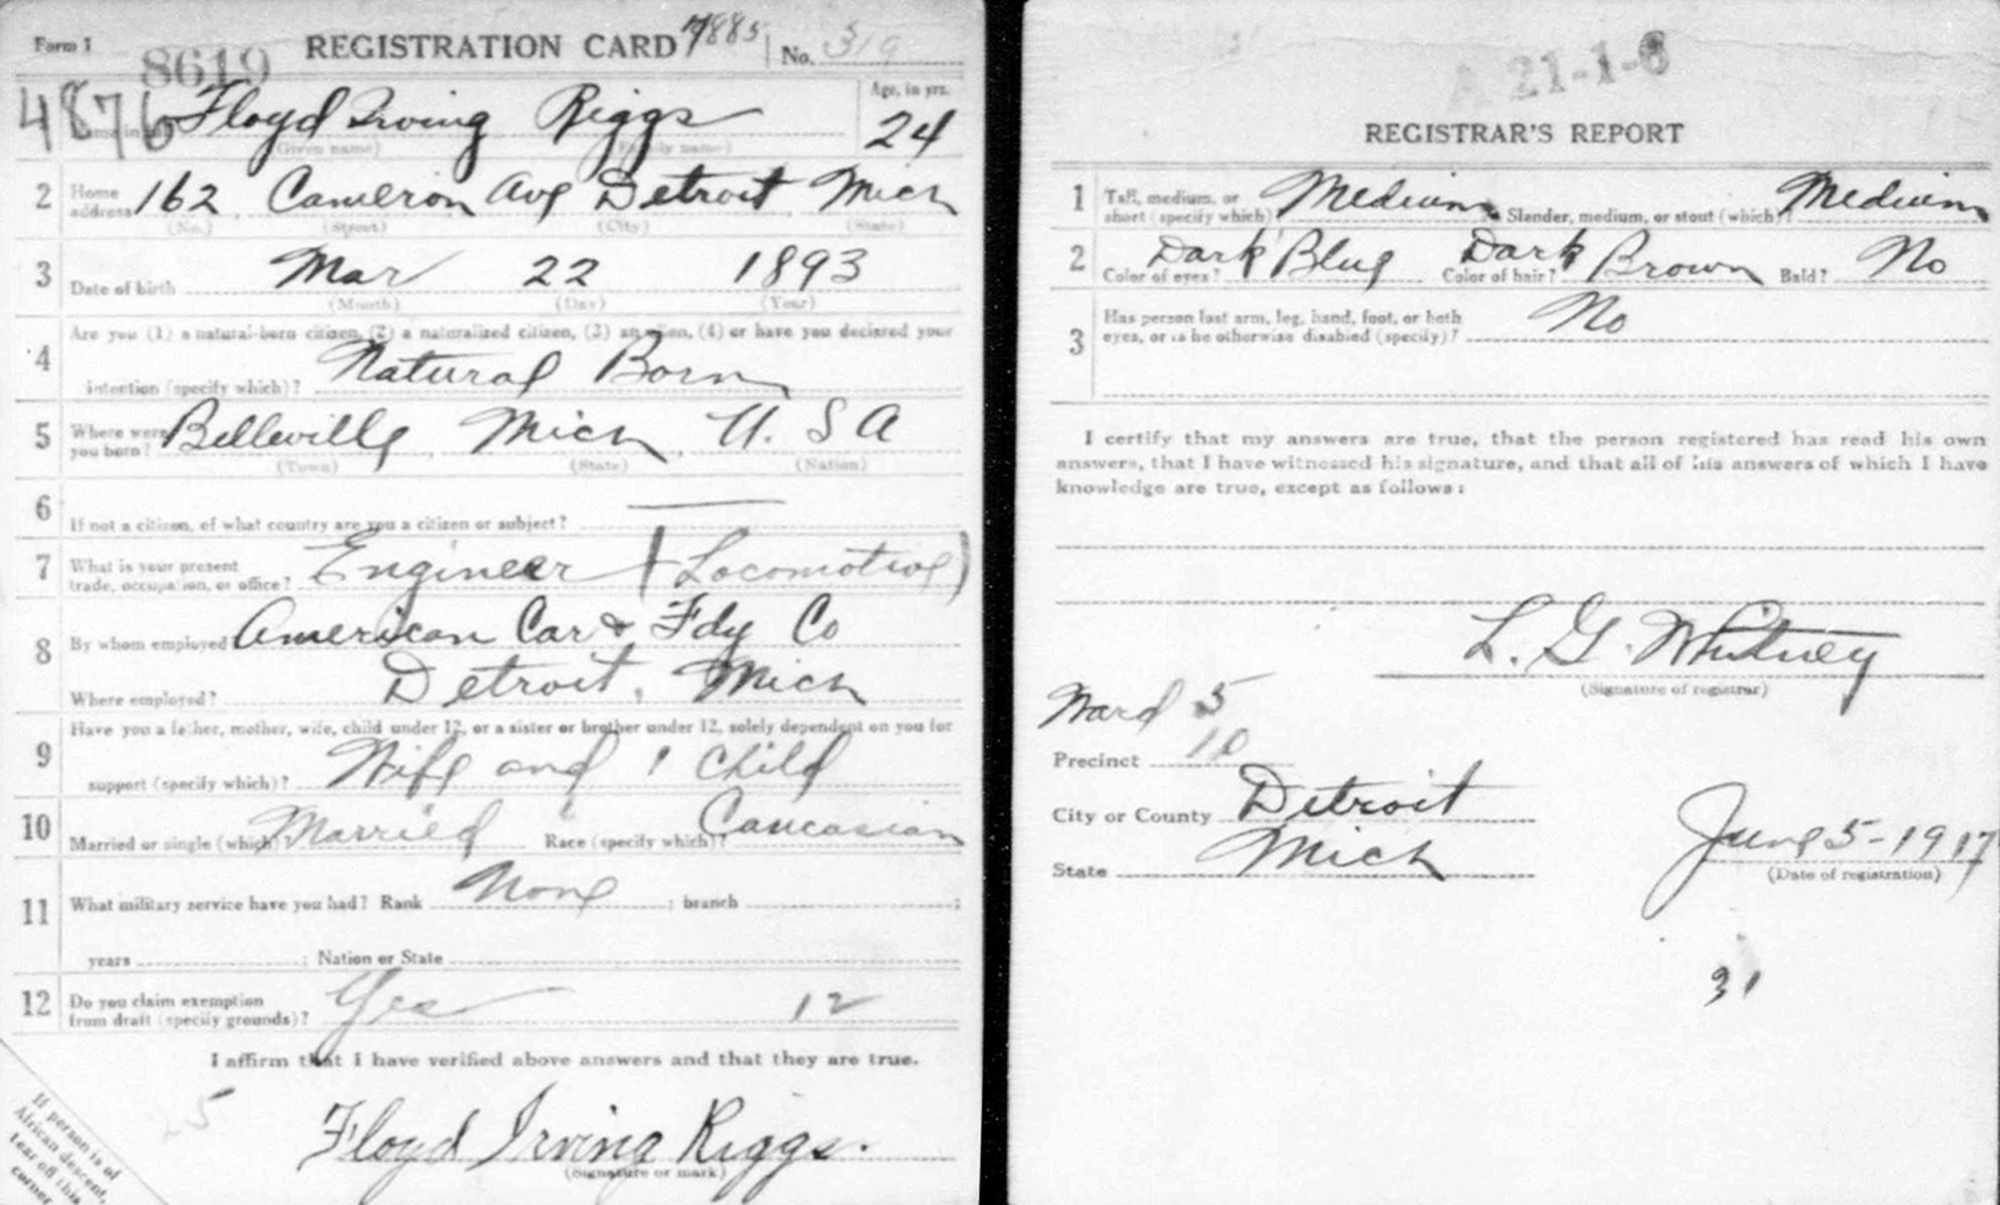 Form 1 REGISTRATION CARD 7885 No. 319
8619
4876 Floyd Irving Riggs Age, in yrs. 24
(Given name) (Family name)
2 Home address 162 Cameron Ave Detroit Mich
(No.) (Street) (City) (State)
3 Date of birth Mar 22 1893
(Month) (Day) (Year)
4 Are you (1) a natural-born citizen, (2) a naturalized citizen, (3) an alien, (4) or have you declared your
intention (specify which)? Natural Born
5 Where were you born? Belleville, Mich, U. S A
(Town) (State) (Nation)
6 If not a citizen, of what country are you a citizen or subject?
7 What is your present trade, occupation, or office? Engineer (Locomotive)
8 By whom employed American Car & Fdy Co
Where employed? Detroit, Mich
9 Have you a father, mother, wife, child under 12, or a sister or brother under 12, solely dependent on you for
support (specify which)? Wife and 1 Child
10 Married or single (which)? Married Race (specify which)? Caucasian
11 What military service have you had? Rank None ; branch ;
years ; Nation or State
12 Do you claim exemption from draft (specify grounds)? Yes 12
I affirm that I have verified above answers and that they are true.
25
Floyd Irving Riggs.
(Signature or mark)
If person is of
African descent,
tear off this
corner
A 21-1-6
REGISTRAR'S REPORT
1 Tall, medium, or short (specify which)? Medium Slender, medium, or stout (which)? Medium
2 Color of eyes? Dark Blue Color of hair? Dark Brown Bald? No
3 Has person lost arm, leg, hand, foot, or both
eyes, or is he otherwise disabled (specify)? No
I certify that my answers are true, that the person registered has read his own
answers, that I have witnessed his signature, and that all of his answers of which I have
knowledge are true, except as follows:
L. G. Whitney
(Signature of registrar)
Ward 5
Precinct 10
City or County Detroit
State Mich
June 5-1917
(Date of registration)
31